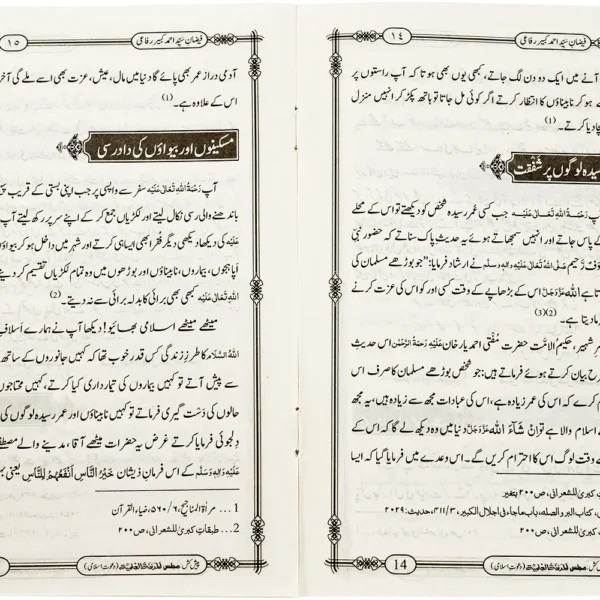 ١٤
فیضانِ سیّد احمد کبیر رفاعی
آنے میں ایک دو دن لگ جاتے، کبھی یوں بھی ہوتا کہ آپ راستوں پر
ے ہو کر نابیناؤں کا انتظار کرتے اگر کوئی مل جاتا تو ہاتھ پکڑ کر انہیں منزل
چا دیا کرتے۔ (1)
سیدہ لوگوں پر شفقت
پ رَحْمَۃُ اللہِ تَعَالٰی عَلَیْہ جب کسی عمر رسیدہ شخص کو دیکھتے تو اس کے محلے
کے پاس جاتے اور انہیں سمجھاتے ہوئے یہ حدیثِ پاک سناتے کہ حضور نبی
ؤفٌ رَّحیم صَلَّی اللہُ تَعَالٰی عَلَیْہِ وَاٰلِہٖ وَسَلَّم نے ارشاد فرمایا: ”جو بوڑھے مسلمان کی
تا ہے اللہ عَزَّوَجَلَّ اس کے بڑھاپے کے وقت کسی اور کو اس کی عزت کرنے
رما دیتا ہے۔ (2)(3)
ِ شہیر، حکیمُ الاُمَّت حضرت مُفتی احمد یار خان عَلَیْہِ رَحْمَۃُ الرَّحْمٰن اس حدیثِ
رح بیان کرتے ہوئے فرماتے ہیں: جو شخص بوڑھے مسلمان کا صرف اس
م کرے کہ اس کی عمر زیادہ ہے، اس کی عبادات مجھ سے زیادہ ہیں، یہ مجھ
ے اسلام والا ہے تو اِنْ شَآءَ اللہ عَزَّوَجَلَّ دنیا میں وہ دیکھ لے گا کہ اس کے
ے وقت لوگ اس کا احترام کریں گے۔ اس وعدے میں فرمایا گیا کہ ایسا
کبریٰ للشعرانی، ص ۲۰۰ بتغیر
، کتاب البر والصلہ، باب ماجاء فی اجلال الکبیر، ۳/ ۴۱۱، حدیث: ۲۰۲۹
کبریٰ للشعرانی، ص ۲۰۰
14
ش کش: مجلس المدینۃ العلمیۃ (دعوتِ اسلامی)
فیضانِ سیّد احمد کبیر رفاعی
١٥
آدمی دراز عمر بھی پائے گا دنیا میں مال، عیش، عزت بھی اسے ملے گی آخر
اس کے علاوہ ہے۔ (1)
مسکینوں اور بیواؤں کی دادرسی
آپ رَحْمَۃُ اللہِ تَعَالٰی عَلَیْہ سفر سے واپسی پر جب اپنی بستی کے قریب پہ
باندھنے والی رسی نکال لیتے اور لکڑیاں جمع کر کے اپنے سر پر رکھ لیتے آپ
عَلَیْہ کی دیکھا دیکھی دیگر فُقَرا بھی ایسا ہی کرتے اور شہر میں داخل ہو کر بیواؤ
اپاہجوں، بیماروں، نابیناؤں اور بوڑھوں میں وہ تمام لکڑیاں تقسیم کر دیتے
اللہِ تَعَالٰی عَلَیْہ کبھی بھی برائی کا بدلہ برائی سے نہ دیتے۔ (2)
میٹھے میٹھے اسلامی بھائیو! دیکھا آپ نے ہمارے اَسلاف
اللہُ السَّلَام کا طرزِ زندگی کس قدر خوب تھا کہ کہیں جانوروں کے ساتھ
سے پیش آتے تو کہیں بیماروں کی تیمارداری کیا کرتے، کہیں محتاجوں
حالوں کی دَست گیری فرماتے تو کہیں نابیناؤں اور عمر رسیدہ لوگوں کی
دِلجوئی فرمایا کرتے غرض یہ حضرات میٹھے آقا، مدینے والے مصطفٰے
عَلَیْہِ وَاٰلِہٖ وَسَلَّم کے اس فرمانِ ذیشان خَیْرُ النَّاسِ اَنْفَعُھُمْ لِلنَّاسِ یعنی بہ
1 ... مرآۃ المناجیح، ۶/ ۵۶۰، ضیاء القرآن
2 ... طبقاتِ کبریٰ للشعرانی، ص ۲۰۰
پیش کش: مجلس المدینۃ العلمیۃ (دعوتِ اسلامی)